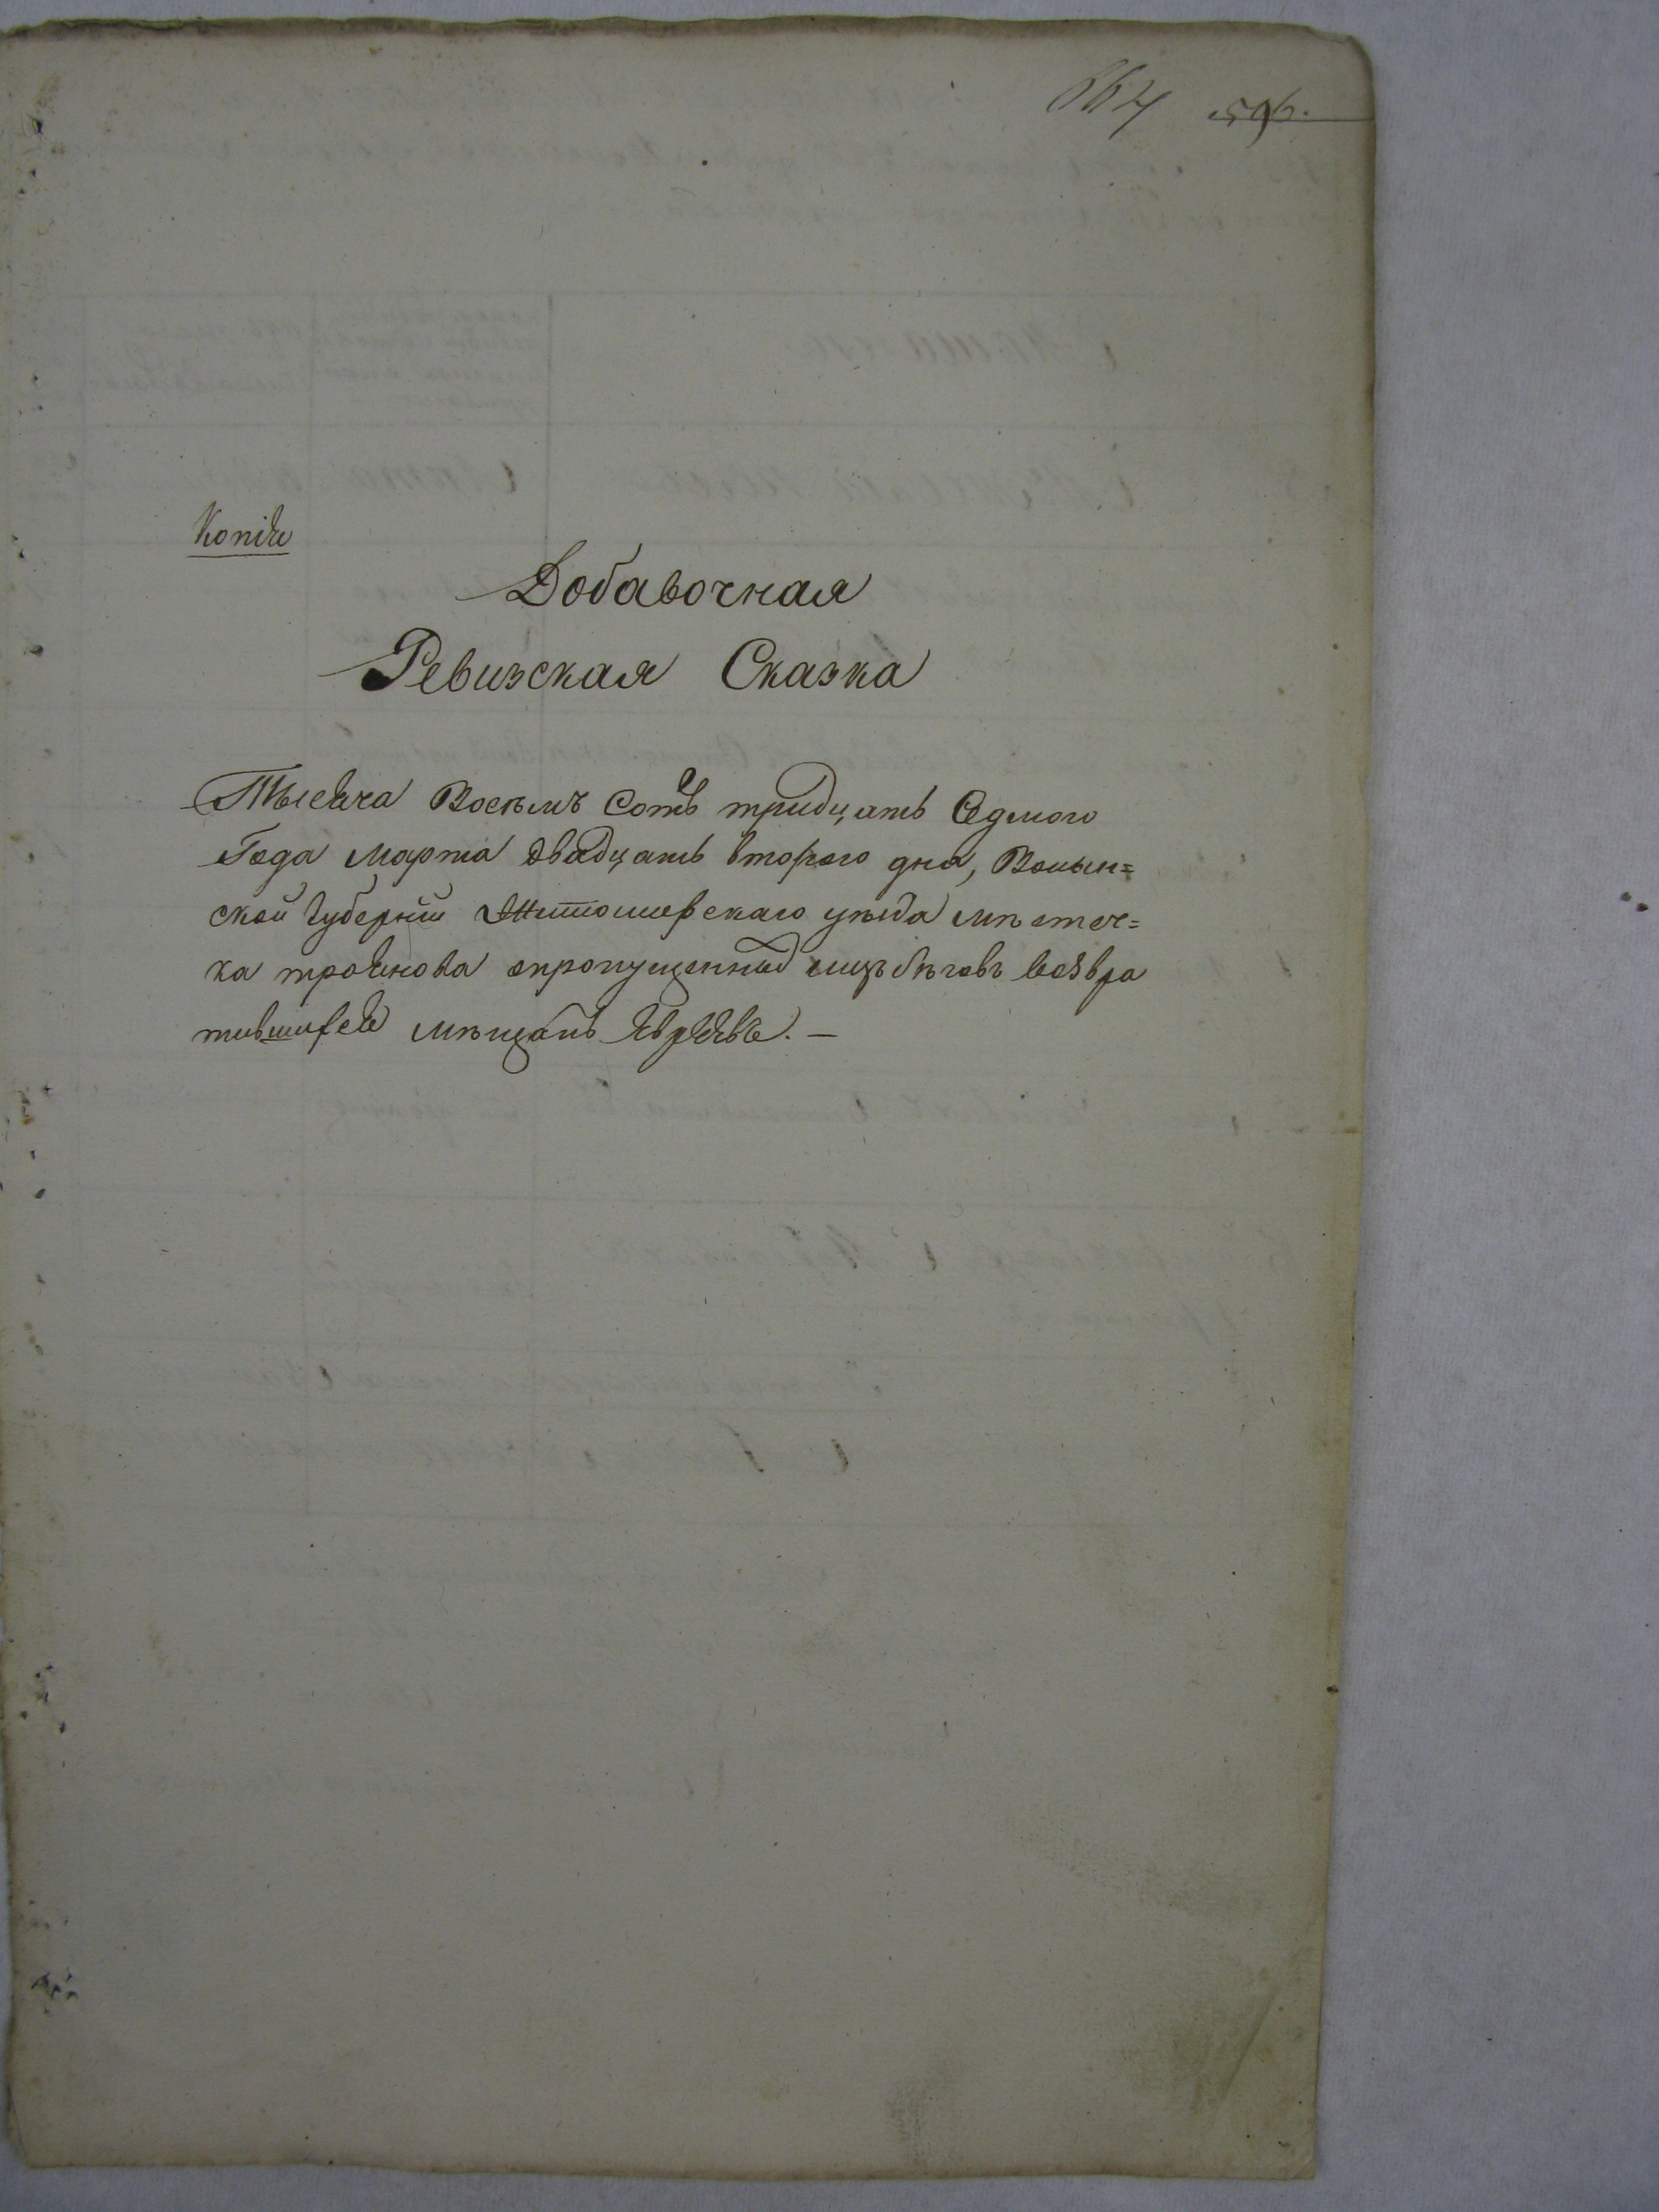 664 596.
Копія
Добавочная
Ревизская Сказка
Тысяча Восѣмъ Сотъ тридцать Седмого
Года Марта двадцать второго дня, Волын=
ской Губерніи Житомирскаго уѣзда мѣстеч=
ка троянова опропущенных изъ бѣговъ возвра
тившихся мѣщанъ Явреевъ. —